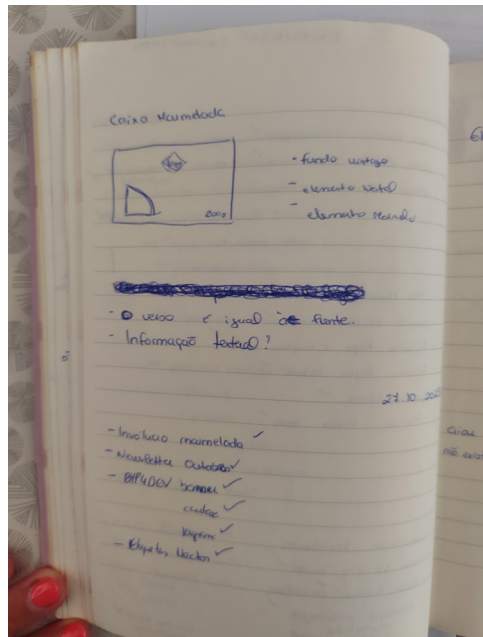 Caixa Marmelada
200g
- fundo vintage
- elemento Natal
- elemento Marmelo
- O verso é igual à frente.
- Informação textual?
27.10.202
- Invólucro marmelada ✓
- Newsletter Outubro ✓
- BIP4DEV banner ✓
✓
✓
- Etiquetas Nectar ✓
ciou
não exis